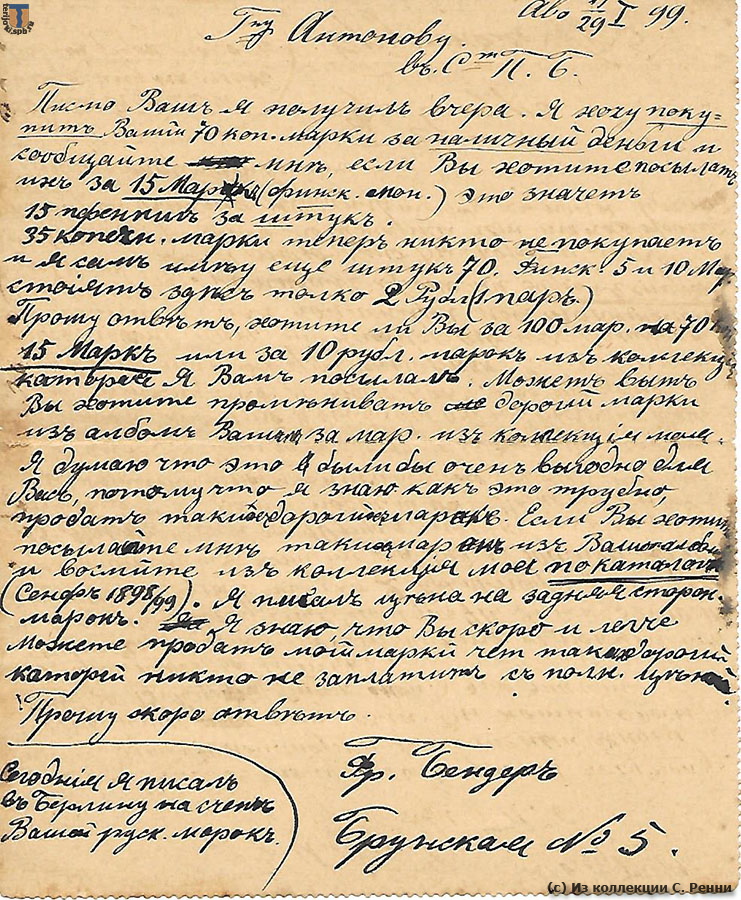 Або 17/29 I 99.
Гну Антонову.
въ Ст П. Б.
Писмо Вашъ я получилъ вчера. Я хочу поку=
пить Вашiи 70 коп. марки за наличный деньги и
сообщайте мнѣ, если Вы хотите посылать
ихъ за 15 Марк (финск. мон.) это значетъ
15 пфенниг за штукъ.
35 копеечн. марки теперъ никто не покупаетъ
и я самъ имѣу еще штукъ 70. Финск. 5 и 10 Мар
стоiятъ здѣсъ толко 2 Рубл (1 паръ.)
Прошу отвѣтъ, хотите ли Вы за 100 мар. на 70 коп
15 Маркъ или за 10 рубл. марокъ изъ коллекцiи
каторая Я Вамъ посылалъ. Можетъ бытъ
Вы хотите промѣниватъ дорогiй марки
изъ албомъ Вашъ за мар. изъ коллекцiя моя.
Я думаю что это былибы оченъ выгодно для
Васъ, потому что я знаю какъ это трудно,
продатъ такiй дорогiй марокъ. Если Вы хотит
посылайте мнѣ такiй марокъ изъ Вашъ албом
и возмiйте изъ коллекцiя моя по каталогъ
(Сенфъ 1898/99). Я писалъ цѣна на задняя сторон.
марокъ. Я знаю, что Вы скоро и легче
можете продатъ моiй маркiй чет такiй дорогiй
каторiй никто не заплатитъ съ полн. цѣной
Прошу скоро отвѣтъ.
Фр. Бендеръ
Брунская № 5.
Сегоднiя я писалъ
въ Берлину на счетъ
Вашей руск. марокъ.
terijoki.spb.ru
(c) Из коллекции С. Ренни